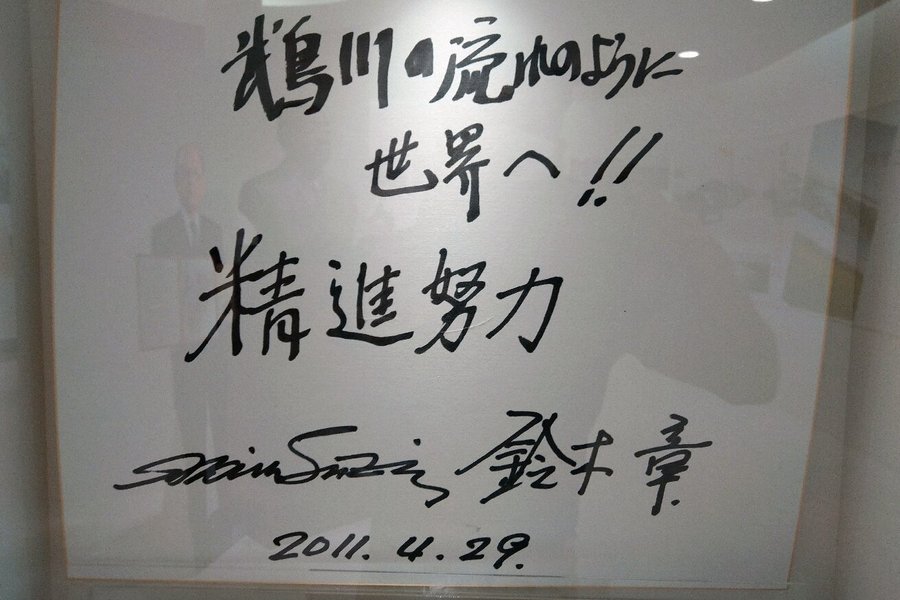 鵡川の流れのように
世界へ!!
精進努力
Akira Suzuki 鈴木 章
2011. 4. 29.